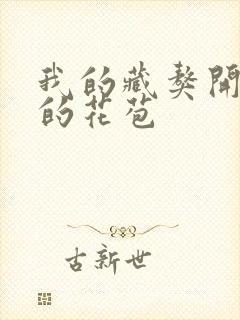 我的藏獒開
的花苞
古新世